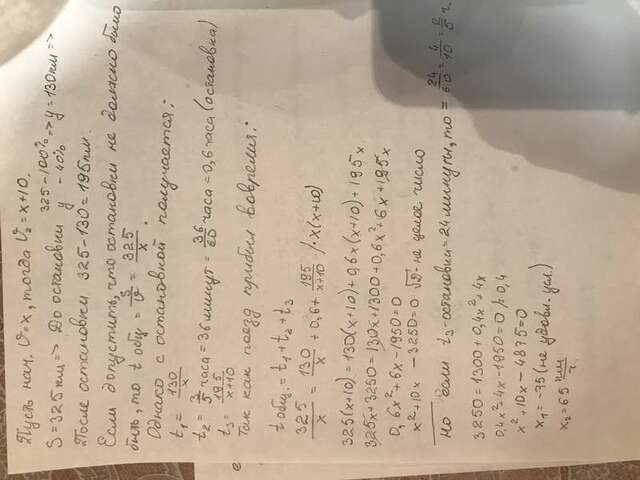 Пусть нач. V=x, тогда V₂ = x+10.
S=325 км => До остановки 325-100% => y = 130 км =>
y - 40%
После остановки 325-130=195 км.
Если допустить, что остановки не должно было
быть, то t общ = S/V = 325/x.
Однако с остановкой получается:
t₁ = 130/x
t₂ = 3/5 часа = 36 минут = 36/60 часа = 0,6 часа (остановка)
t₃ = 195/x+10
Так как поезд прибыл вовремя:
t общ. = t₁ + t₂ + t₃
325/x = 130/x + 0,6 + 195/x+10 /·x(x+10)
325(x+10) = 130(x+10) + 0,6x(x+10) + 195x
325x+3250 = 130x+1300+0,6x²+6x+195x
0,6x²+6x-1950=0
x²+10x-3250=0 √D - не целое число
Но если t₃ - остановка = 24 минуты, то = 24/60 = 4/10 = 2/5 ч.
3250 = 1300 + 0,4x² + 4x
0,4x² 4x-1950=0 /:0,4
x²+10x-4875=0
x₁=-75 (не удовл. усл.)
x₂=65 км/ч.